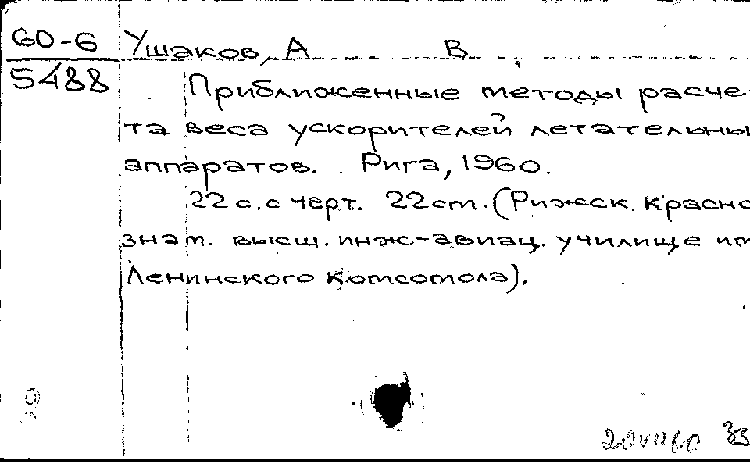 60-6 Ушаков, А В.
5488
Приближенные методы расче-
та веса ускорителей летательны
аппаратов. Рига, 1960.
22 с. с черт. 22 см. (Рижск. красно
знам. высш. инж-авиац. училище им
Ленинского Комсомола).